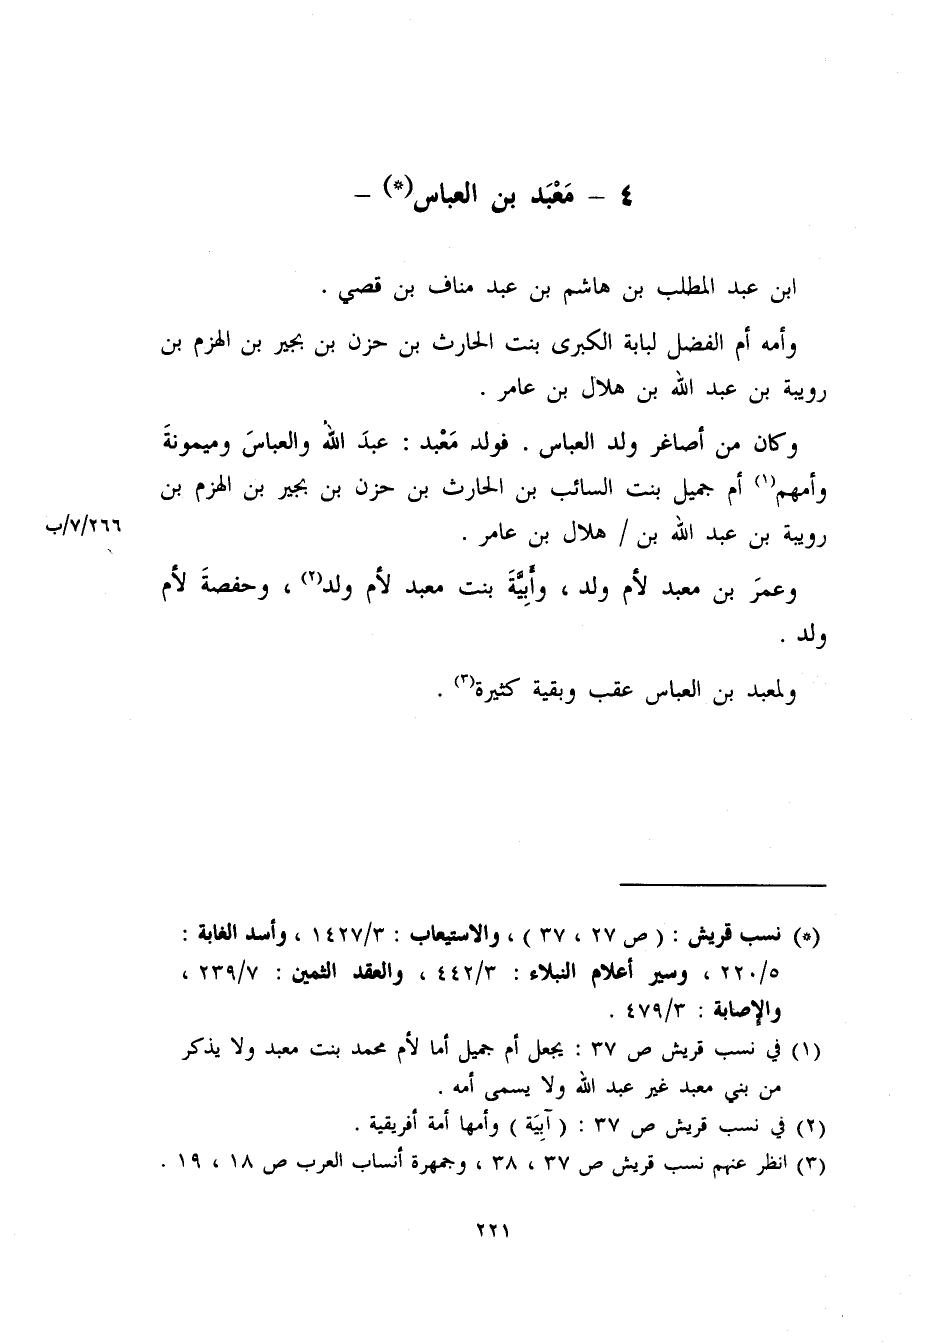 ٤ - مَعْبَد بن العباس(*) -
ابن عبد المطلب بن هاشم بن عبد مناف بن قصي .
وأمه أم الفضل لبابة الكبرى بنت الحارث بن حزن بن بجير بن الهزم بن
رويبة بن عبد الله بن هلال بن عامر .
وكان من أصاغر ولد العباس . فولد مَعْبد : عبدَ الله والعباسَ وميمونةَ
وأمهم(١) أم جميل بنت السائب بن الحارث بن حزن بن بجير بن الهزم بن
رويبة بن عبد الله بن / هلال بن عامر .
٧/٢٦٦/ب
وعمرَ بن معبد لأم ولد ، وأَبِيَّةَ بنت معبد لأم ولد(٢) ، وحفصةَ لأم
ولد .
ولمعبد بن العباس عقب وبقية كثيرة(٣) .
(*) نسب قريش : ( ص ٢٧ ، ٣٧ ) ، والاستيعاب : ١٤٢٧/٣ ، وأسد الغابة :
٢٢٠/٥ ، وسير أعلام النبلاء : ٤٤٢/٣ ، والعقد الثمين : ٢٣٩/٧ ،
والإصابة : ٤٧٩/٣ .
(١) في نسب قريش ص ٣٧ : يجعل أم جميل أما لأم محمد بنت معبد ولا يذكر
من بني معبد غير عبد الله ولا يسمى أمه .
(٢) في نسب قريش ص ٣٧ : ( آبِيَة ) وأمها أمة أفريقية .
(٣) انظر عنهم نسب قريش ص ٣٧ ، ٣٨ ، وجمهرة أنساب العرب ص ١٨ ، ١٩ .
٢٢١